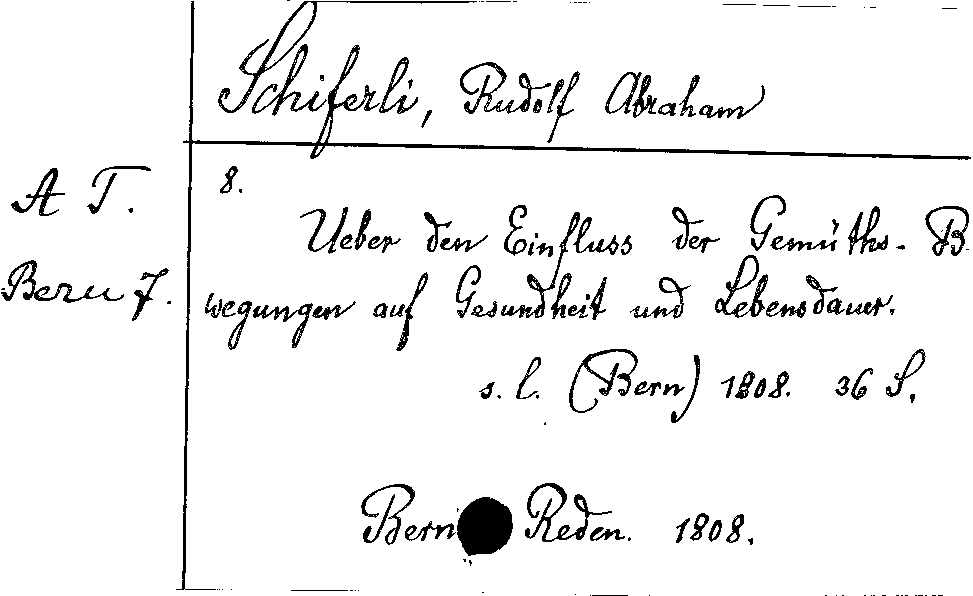 Schiferli, Rudolf Abraham
A T.
Bern 7.
8.
Ueber den Einfluss der Gemüths-B
wegungen auf Gesundheit und Lebensdauer.
s. l. (Bern) 1808. 36 S.
Bern Reden. 1808.